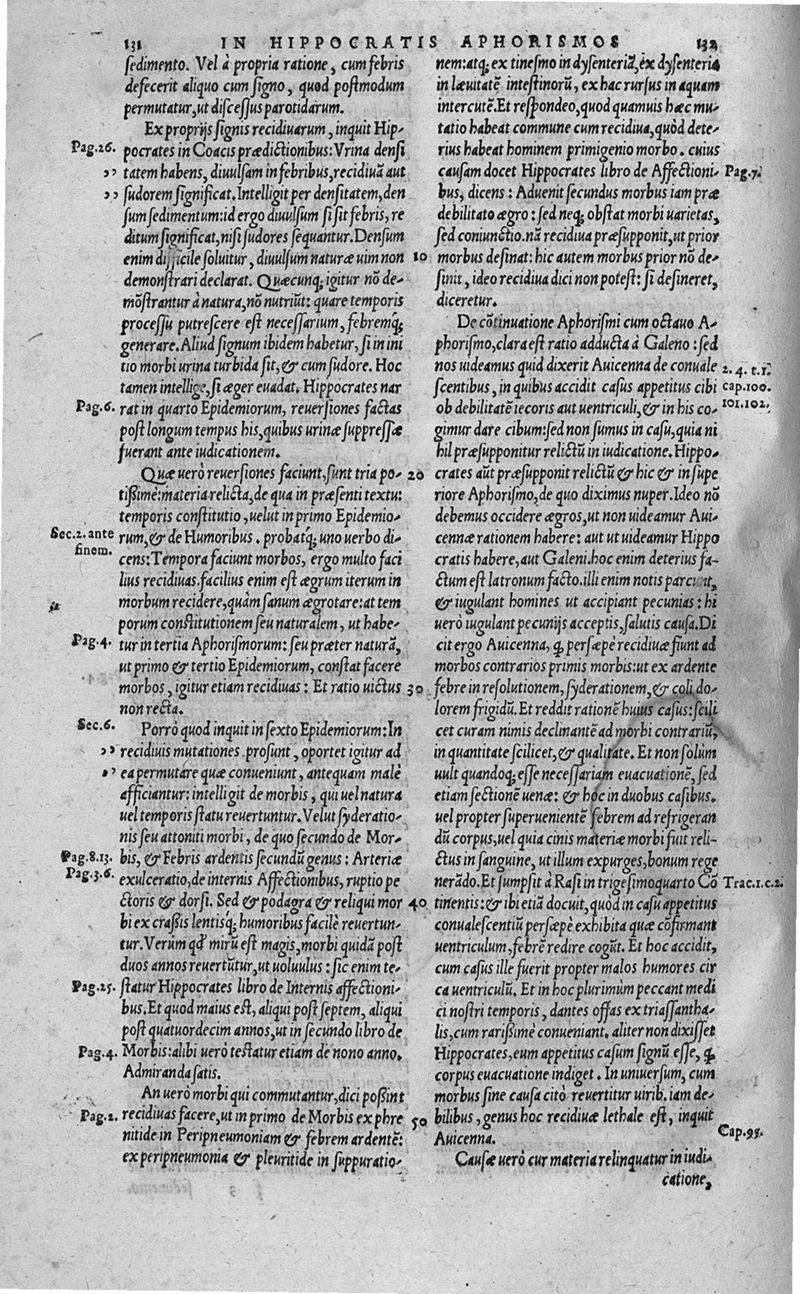 131 IN HIPPOCRATIS APHORISMOS 132
sedimento. Vel à propria ratione, cum febris
defecerit aliquo cum signo, quod postmodum
permutatur, ut discessus parotidarum.
Ex proprijs signis recidiuarum, inquit Hip-
Pag.26. pocrates in Coacis prædictionibus: Vrina densi
,, tatem habens, diuulsam in febribus, recidiuã aut
,, sudorem significat. Intelligit per densitatem, den
sum sedimentum: id ergo diuulsum si sit febris, re
ditum significat, nisi sudores sequantur. Densum
enim difficile soluitur, diuulsum naturæ uim non 10
demonstrari declarat. Quæcunq; igitur nõ de-
mõstrantur à natura, nõ nutriũt: quare temporis
processu putrescere est necessarium, febremq;
generare. Aliud signum ibidem habetur, si in ini
tio morbi urina turbida sit, & cum sudore. Hoc
tamen intellige, si æger euadat. Hippocrates nar
Pag.6. rat in quarto Epidemiorum, reuersiones factas
post longum tempus his, quibus urinæ suppressæ
fuerant ante iudicationem.
Quæ uerò reuersiones faciunt, sunt tria po- 20
tißimè: materia relicta, de qua in præsenti textu:
temporis constitutio, uelut in primo Epidemio-
Sec.2. ante finem. rum, & de Humoribus. probatq; uno uerbo di-
cens: Tempora faciunt morbos, ergo multo faci
lius recidiuas. facilius enim est ægrum iterum in
morbum recidere, quàm sanum ægrotare: at tem
porum constitutionem seu naturalem, ut habe-
Pag.4. tur in tertia Aphorismorum: seu præter naturã,
ut primo & tertio Epidemiorum, constat facere
morbos, igitur etiam recidiuas: Et ratio uictus 30
non recta.
Sec.6. Porrò quod inquit in sexto Epidemiorum: In
,, recidiuis mutationes prosunt, oportet igitur ad
,, ea permutare quæ conueniunt, antequam malè
afficiantur: intelligit de morbis, qui uel natura
uel temporis statu reuertuntur. Velut syderatio-
nis seu attoniti morbi, de quo secundo de Mor-
Pag.8.13. bis, & Febris ardentis secundũ genus: Arteriæ
Pag.3.6. exulceratio, de internis Affectionibus, ruptio pe
ctoris & dorsi. Sed & podagra & reliqui mor 40
bi ex crassis lentisq; humoribus facilè reuertun-
tur. Verùm qđ mirũ est magis, morbi quidã post
duos annos reuertũtur, ut uoluulus: sic enim te-
Pag.25. statur Hippocrates libro de Internis affectioni-
bus. Et quod maius est, aliqui post septem, aliqui
post quatuordecim annos, ut in secundo libro de
Pag.4. Morbis: alibi uerò testatur etiam de nono anno.
Admiranda satis.
An uerò morbi qui commutantur, dici poßint
Pag.2. recidiuas facere, ut in primo de Morbis ex phre 50
nitide in Peripneumoniam & febrem ardentẽ:
ex peripneumonia & pleuritide in suppuratio-
nem: atq; ex tinesmo in dysenteriã, ex dysenteria
in læuitatẽ intestinorũ, ex hac rursus in aquam
intercutẽ. Et respondeo, quod quamuis hæc mu-
tatio habeat commune cum recidiua, quòd dete-
rius habeat hominem primigenio morbo. cuius
causam docet Hippocrates libro de Affectioni- Pag.7.
bus, dicens: Aduenit secundus morbus iam præ
debilitato ægro: sed neq; obstat morbi uarietas,
sed coniunctio. nã recidiua præsupponit, ut prior
morbus desinat: hic autem morbus prior nõ de-
sinit, ideo recidiua dici non potest: si desineret,
diceretur.
De cõtinuatione Aphorismi cum octauo A-
phorismo, clara est ratio adducta à Galeno: sed
nos uideamus quid dixerit Auicenna de conuale 2. 4. t. 1.
scentibus, in quibus accidit casus appetitus cibi cap.100.
ob debilitatẽ iecoris aut uentriculi, & in his co- 101.102.
gimur dare cibum: sed non sumus in casu, quia ni
hil præsupponitur relictũ in iudicatione. Hippo-
crates aũt præsupponit relictũ & hic & in supe
riore Aphorismo, de quo diximus nuper. Ideo nõ
debemus occidere ægros, ut non uideamur Aui-
cennæ rationem habere: aut ut uideamur Hippo
cratis habere, aut Galeni. hoc enim deterius fa-
ctum est latronum facto. illi enim notis parcunt,
& iugulant homines ut accipiant pecunias: hi
uerò iugulant pecunijs acceptis, salutis causa. Di
cit ergo Auicenna, ꝙ persæpè recidiuæ fiunt ad
morbos contrarios primis morbis: ut ex ardente
febre in resolutionem, syderationem, & coli do-
lorem frigidũ. Et reddit rationẽ huius casus: scili
cet curam nimis declinantẽ ad morbi contrariũ,
in quantitate scilicet, & qualitate. Et non solùm
uult quandoq; esse necessariam euacuationẽ, sed
etiam sectionẽ uenæ: & hoc in duobus casibus.
uel propter superuenientẽ febrem ad refrigeran
dũ corpus, uel quia cinis materiæ morbi fuit reli-
ctus in sanguine, ut illum expurges, bonum rege
nerãdo. Et sumpsit à Rasi in trigesimoquarto Cõ Trac.1.c.2.
tinentis: & ibi etiã docuit, quòd in casu appetitus
conualescentiũ persæpè exhibita quæ cõfirmant
uentriculum, febrẽ redire cogũt. Et hoc accidit,
cum casus ille fuerit propter malos humores cir
ca uentriculũ. Et in hoc plurimùm peccant medi
ci nostri temporis, dantes offas ex triassantha-
lis, cum rarißimè conueniant. aliter non dixisset
Hippocrates, eum appetitus casum signũ esse, ꝙ
corpus euacuatione indiget. In uniuersum, cum
morbus sine causa citò reuertitur uirib. iam de-
bilibus, genus hoc recidiuæ lethale est, inquit
Auicenna. Cap.95.
Causæ uerò cur materia relinquatur in iudi-
catione,